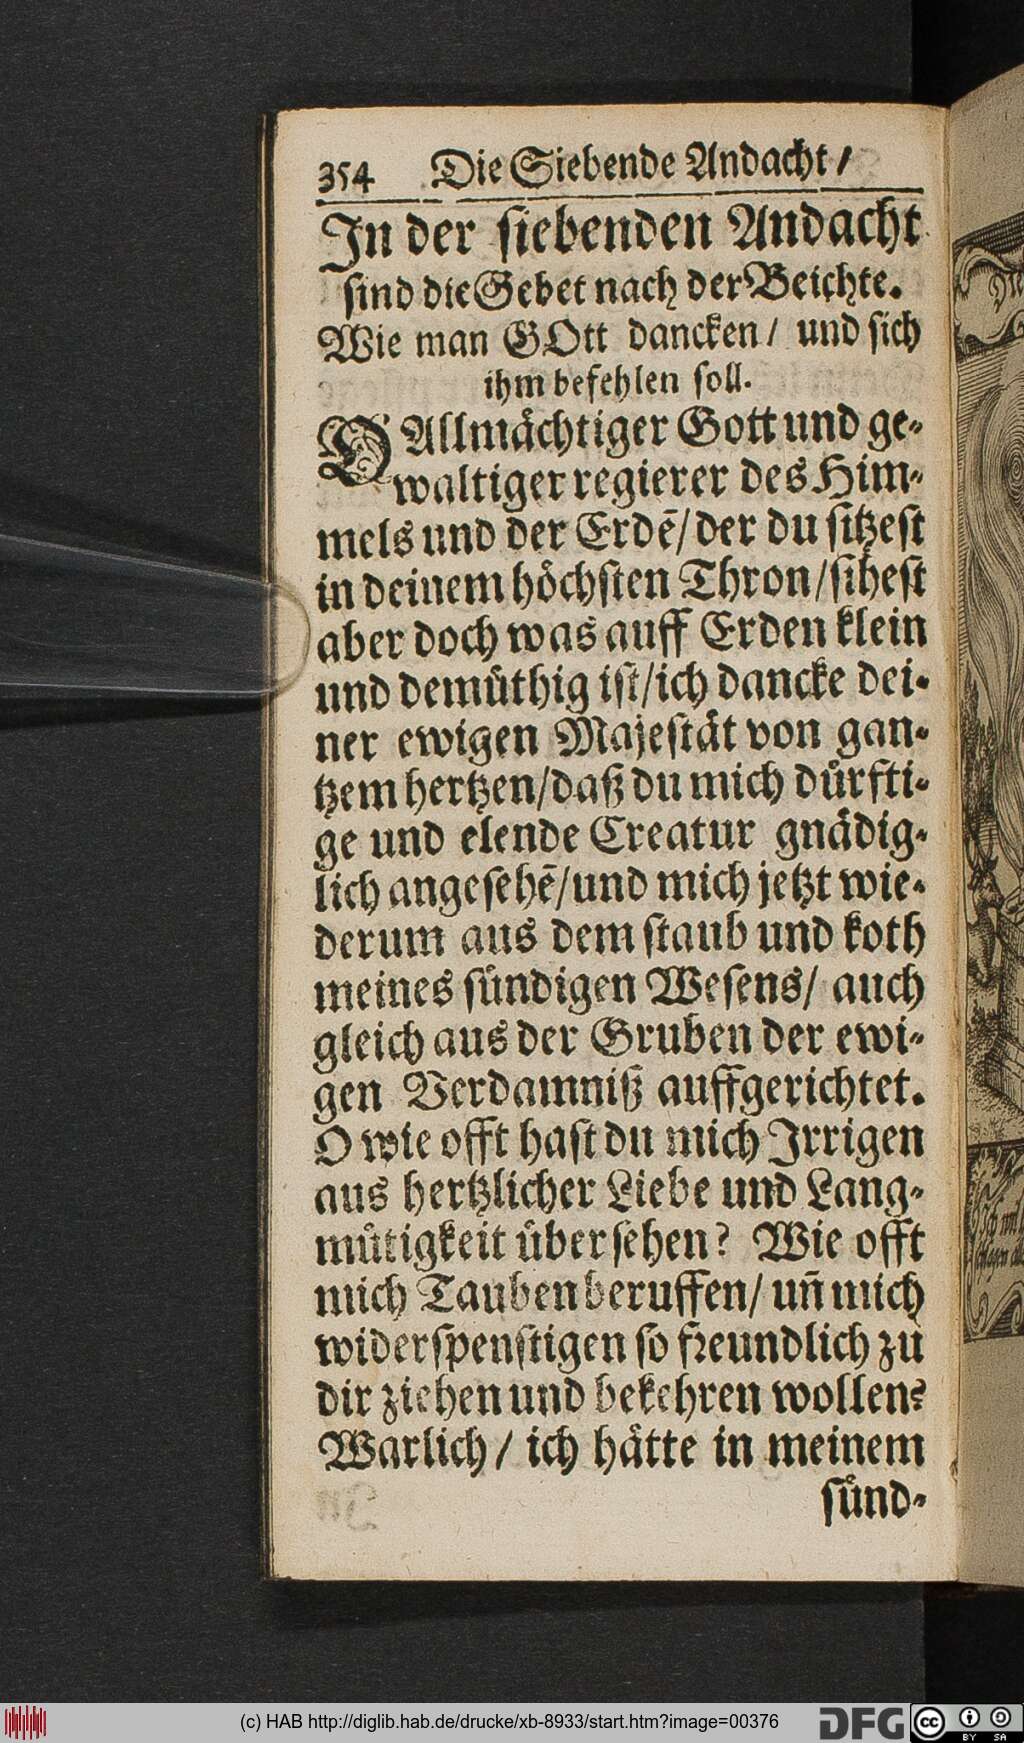 354 Die Siebende Andacht /
In der siebenden Andacht
sind die Gebet nach der Beichte.
Wie man GOtt dancken / und sich
ihm befehlen soll.
O Allmächtiger Gott und ge-
waltiger regierer des Him-
mels und der Erdē / der du sitzest
in deinem höchsten Thron / sihest
aber doch was auff Erden klein
und demüthig ist / ich dancke dei-
ner ewigen Majestät von gan-
tzem hertzen / daß du mich dürfti-
ge und elende Creatur gnädig-
lich angesehē / und mich jetzt wie-
derum aus dem staub und koth
meines sündigen Wesens / auch
gleich aus der Gruben der ewi-
gen Verdamniß auffgerichtet.
O wie offt hast du mich Irrigen
aus hertzlicher Liebe und Lang-
mütigkeit übersehen? Wie offt
mich Tauben beruffen / un̄ mich
widerspenstigen so freundlich zu
dir ziehen und bekehren wollen?
Warlich / ich hätte in meinem
sünd-
(c) HAB http://diglib.hab.de/drucke/xb-8933/start.htm?image=00376
DFG
cc BY SA